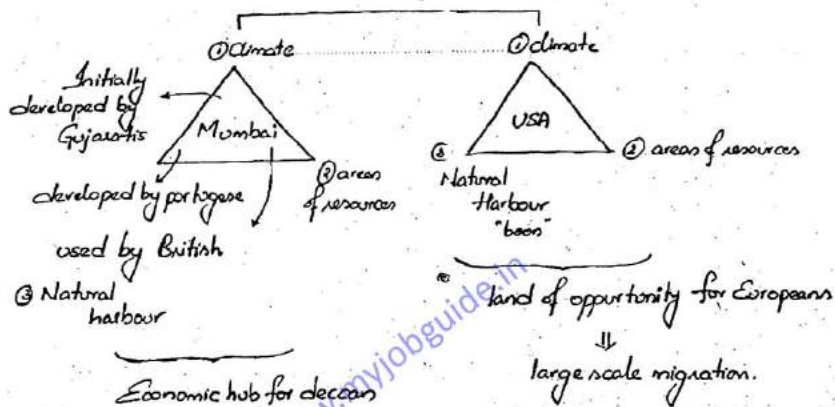 ① climate
① climate
Initially
developed by
Gujaratis
Mumbai
② areas
of resources
developed by portogese
used by British
③ Natural
harbour
Economic hub for deccan
USA
② areas of resources
③
Natural
Harbour
"boon"
land of oppurtunity for Europeans
⇓
large scale migration.
www.myjobguide.in